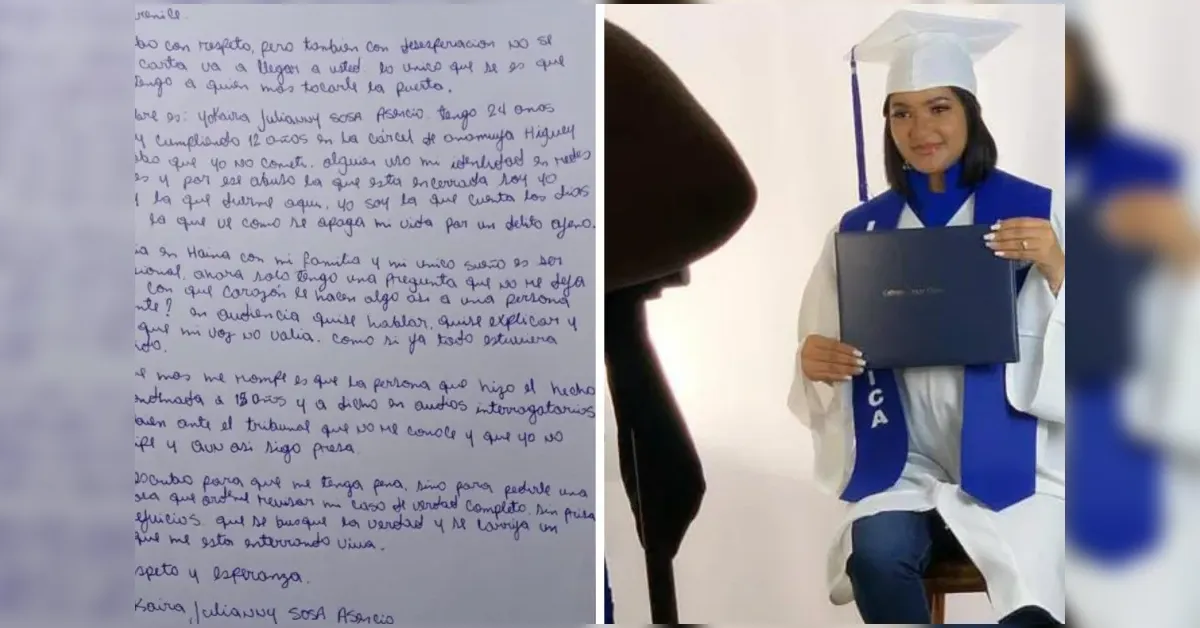 venile.
bo con respeto, pero tambien con desesperacion no se
carta va a llegar a usted. lo unico que se es que
tengo a quien mas tocarle la puerta.
bre es: yokaira Julianny SOSA Asencio. tengo 24 anos
y cumpliendo 12 años en la cárcel de anamuya Higuey
que yo no cometi. alguien uso mi identidad en redes
es y por ese abuso la que esta encerrada soy yo
y la que duerme aqui, yo soy la que cuenta los dias
la que ve como se apaga mi vida por un delito ajeno.
ia en Haina con mi familia y mi unico sueño es ser
sional, ahora solo tengo una pregunta que no me deja
con que corazón le hacen algo asi a una persona
nte? en audiencia quise hablar, quise explicar y
que mi voz no valia. como si ya todo estuviera
do.
e mas me rompe es que la persona que hizo el hecho
ondenada a 15 años y a dicho en audios interrogatorios
bien ante el tribunal que no me conoce y que yo no
ipe y aun asi sigo presa.
escribo para que me tenga pena, sino para pedirle una
sa que ordene revisar mi caso de verdad completo. sin prisa
ejuicios. que se busque la verdad y se corrija un
que me esta enterrando viva.
speto y esperanza.
kaira Julianny SOSA Asencio
ICA